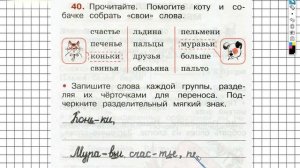 40. Прочитайте. Помогите коту и со-
бачке собрать «свои» слова.
счастье льдина пельмени
печенье пальцы муравьи
коньки друзья больше
свинья обезьяна пальто
• Запишите слова каждой группы, разде-
ляя их чёрточками для переноса. Под-
черкните разделительный мягкий знак.
Конь-ки,
Мура-вьи, счас-тье, пе